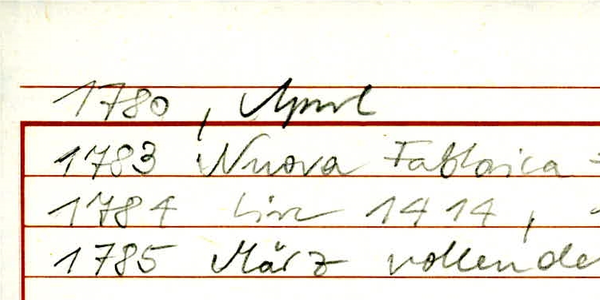 1780, April
1783 Nuova Fabbrica
1784 Lire 1414,
1785 März vollende